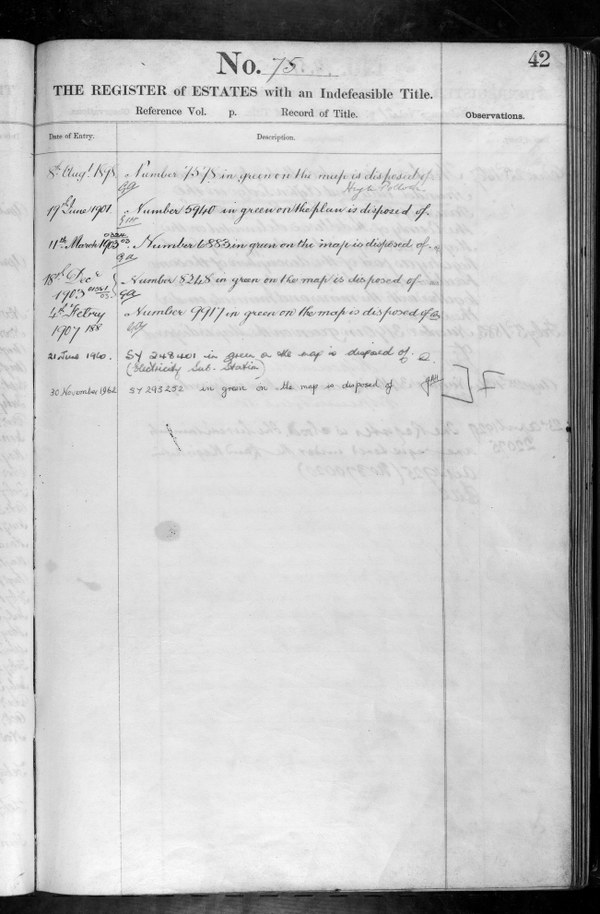 42
No. 75
THE REGISTER of ESTATES with an Indefeasible Title.
Reference Vol. p. Record of Title.
Observations.
Date of Entry.
Description.
8th Augt. 1898 Number 7578 in green on the map is disposed of
19th June 1901 Number 5940 in green on the plan is disposed of.
11th March 1903 Number 6883 in green on the map is disposed of.
18th Decr
1905 Number 8248 in green on the map is disposed of
4th Febry Number 9917 in green on the map is disposed of
1907
21 June 1960. SY 248401 in green on the map is disposed of.
(Electricity Sub-Station)
30 November 1962 SY 293252 in green on the map is disposed of